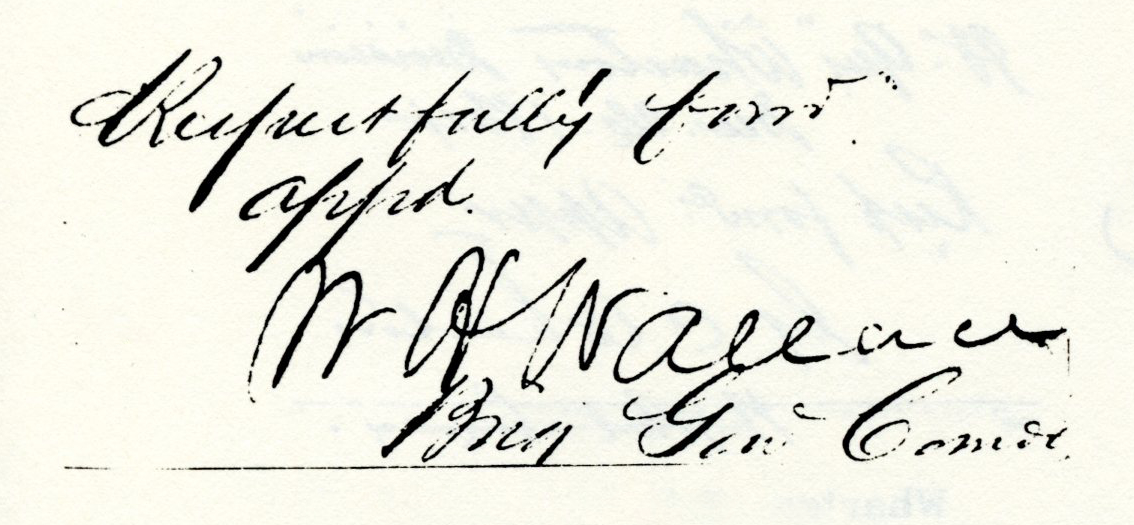 Respectfully forwd
appd.
W H Wallace
Brig Genl Comdg